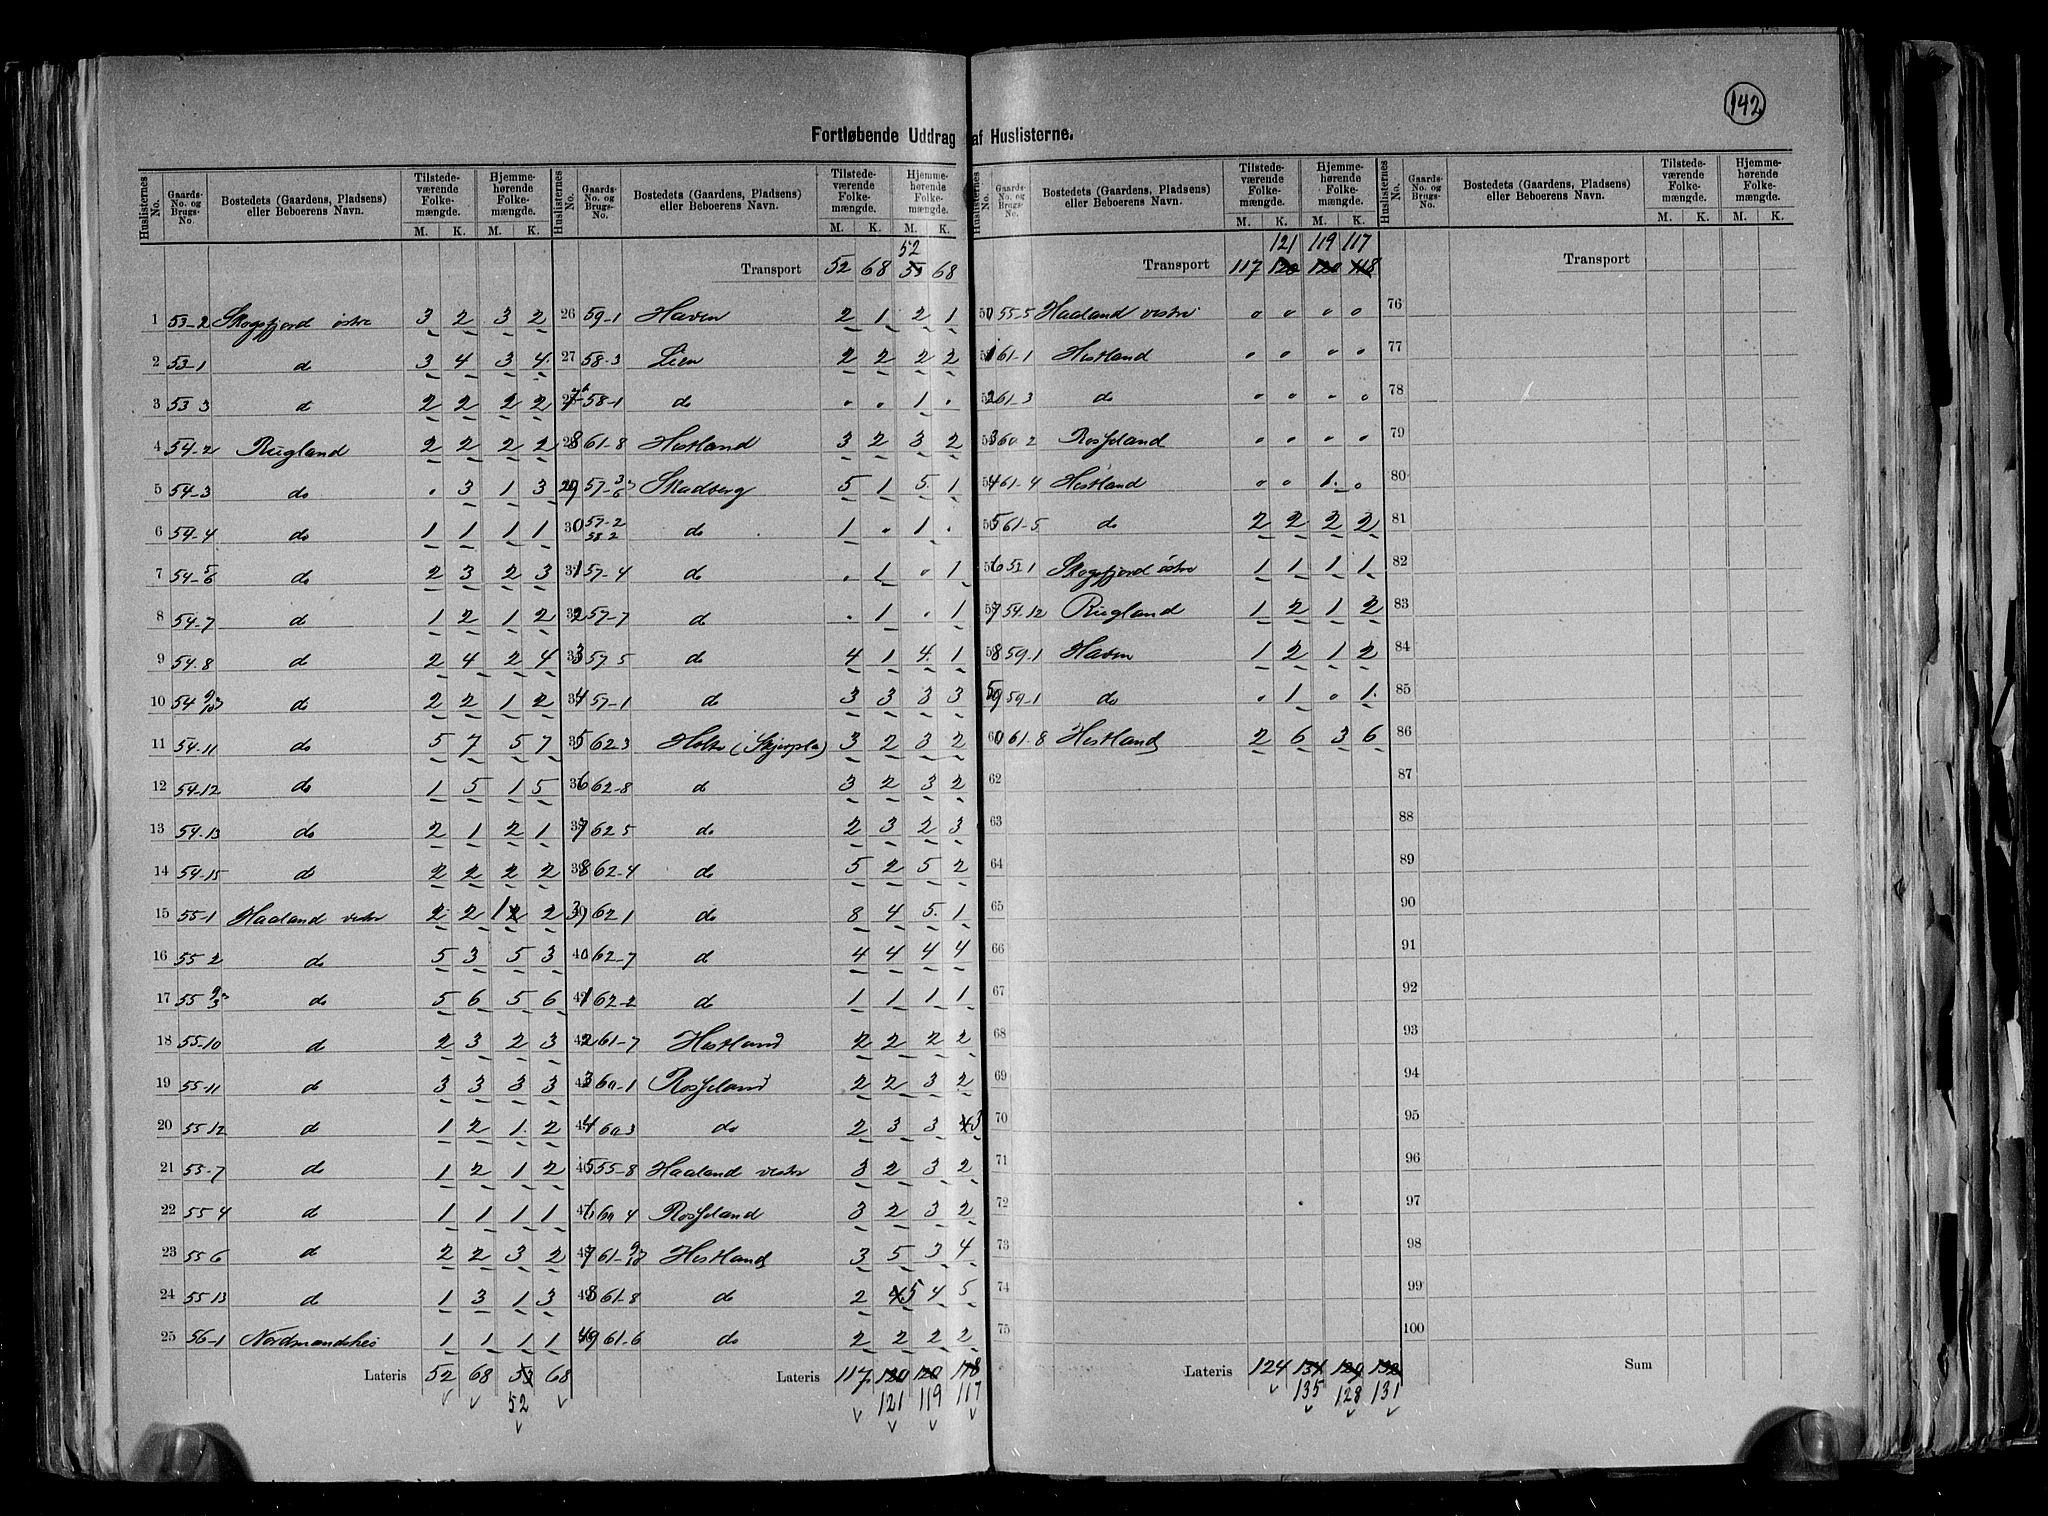 142
Fortløbende Uddrag af Huslisterne.
Huslisternes No. | Gaards-No. og Brugs-No. | Bostedets (Gaardens, Pladsens) eller Beboerens Navn. | Tilstede-værende Folke-mængde. M. K. | Hjemme-hørende Folke-mængde. M. K.
1 53-2 Skogsfjord østre 3 2 3 2
2 53-1 d 3 4 3 4
3 53 3 d 2 2 2 2
4 54-2 Rugland 2 2 2 2
5 54-3 do . 3 1 3
6 54-4 do 1 1 1 1
7 54-5/6 do 2 3 2 3
8 54-7 d 1 2 1 2
9 54.8 d 2 4 2 4
10 54 9/10 d 2 2 1 2
11 54-11 do 5 7 5 7
12 54-12 do 1 5 1 5
13 54-13 do 2 1 2 1
14 54-15 do 2 2 2 2
15 55-1 Haaland vestre 2 2 1 2
16 55 2 do 5 3 5 3
17 55 9/3 do 5 6 5 6
18 55-10 d 2 3 2 3
19 55-11 d 3 3 3 3
20 55 12 d 1 2 1 2
21 55-7 do 1 2 1 2
22 55 4 d 1 1 1 1
23 55 6 d 2 2 3 2
24 55 13 d 1 3 1 3
25 56-1 Nordmandshei 1 1 1 1
Lateris 52 68 53 68
52
Huslisternes No. | Gaards-No. og Brugs-No. | Bostedets (Gaardens, Pladsens) eller Beboerens Navn. | Tilstede-værende Folke-mængde. M. K. | Hjemme-hørende Folke-mængde. M. K.
52
Transport 52 68 53 68
26 59-1 Haven 2 1 2 1
27 58-3 Lien 2 2 2 2
58-1 do . . 1 .
28 61-8 Hestland 3 2 3 2
29 57-3/6 Skadberg 5 1 5 1
30 57-2 58 2 do 1 . 1 .
31 57-4 d . 1 . 1
32 57-7 d . 1 . 1
33 57 5 do 4 1 4 1
34 57-1 d 3 3 3 3
35 62 3 Holte (Skjerpla) 3 2 3 2
36 62-8 d 3 2 3 2
37 62 5 do 2 3 2 3
38 62-4 do 5 2 5 2
39 62 1 do 8 4 5 1
40 62-7 d 4 4 4 4
41 62-2 d 1 1 1 1
42 61-7 Hestland 2 2 2 2
43 60-1 Rosseland 2 2 3 2
44 60 3 do 2 3 3 3
45 55-8 Haaland vestre 3 2 3 2
46 60 4 Rosseland 3 2 3 2
47 61-9/10 Hestland 3 5 3 4
48 61-8 do 2 5 4 5
49 61-6 do 2 2 2 2
Lateris 117 120 120 118
121 119 117
Huslisternes No. | Gaards-No. og Brugs-No. | Bostedets (Gaardens, Pladsens) eller Beboerens Navn. | Tilstede-værende Folke-mængde. M. K. | Hjemme-hørende Folke-mængde. M. K.
121 119 117
Transport 117 120 120 118
50 55-5 Haaland vestre 0 0 0 0
51 61-1 Hestland 0 0 0 0
52 61-3 do 0 0 0 0
53 60-2 Rosseland 0 0 0 0
54 61-4 Hestland 0 0 1 0
55 61-5 do 2 2 2 2
56 53 1 Skogsfjord østre 1 1 1 1
57 54-12 Rugland 1 2 1 2
58 59-1 Haven 1 2 1 2
59 59-1 do 0 1 0 1
60 61-8 Hestland 2 6 3 6
62
63
64
65
66
67
68
69
70
71
72
73
74
75
Lateris 124 134 129 132
135 128 131
Huslisternes No. | Gaards-No. og Brugs-No. | Bostedets (Gaardens, Pladsens) eller Beboerens Navn. | Tilstede-værende Folke-mængde. M. K. | Hjemme-hørende Folke-mængde. M. K.
Transport
76
77
78
79
80
81
82
83
84
85
86
87
88
89
90
91
92
93
94
95
96
97
98
99
100
Sum